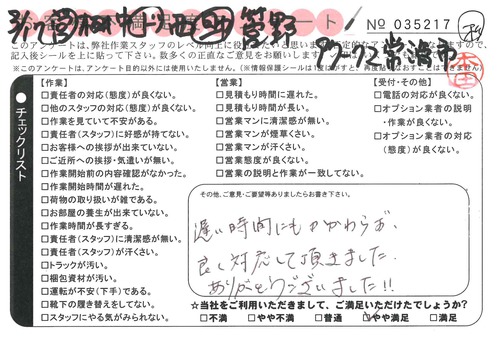 № 035217
このアンケートは、弊社作業スタッフのレベル向上に
記入後シールを上に貼って下さい。数多くの正直なご意見をお願いします
※このアンケートは、アンケート目的以外には使用いたしません。
チェックリスト
【作業】
□責任者の対応(態度)が良くない。
□他のスタッフの対応(態度)が良くない。
□作業を見ていて不安がある。
□責任者(スタッフ)に好感が持てない。
□お客様への挨拶が出来ていない。
□ご近所への挨拶・気遣いが無い。
□作業開始前の内容確認がなかった。
□作業開始時間が遅れた。
□荷物の取り扱いが雑である。
□お部屋の養生が出来ていない。
□作業時間が長すぎる。
□責任者(スタッフ)に清潔感が無い。
□責任者(スタッフ)が汗くさい。
□トラックが汚い。
□梱包資材が汚い。
□運転が不安(下手)である。
□靴下の履き替えをしてない。
□スタッフにやる気がみられない。
【営業】
□見積もり時間に遅れた。
□見積もり時間が長い。
□営業マンに清潔感が無い。
□営業マンが煙草くさい。
□営業マンが汗くさい。
□営業態度が良くない。
□営業の説明と作業が一致してない。
【受付・その他】
□電話の対応が良くない。
□オプション業者の説明
・作業が良くない。
□オプション業者の対応
(態度)が良くない。
その他、ご意見・ご要望等ありましたらお書き下さい。
遅い時間にもかかわらず、
良く対応して頂きました。
ありがとうございました!!
☆当社をご利用いただきまして、ご満足いただけたでしょうか?
□不満 □やや不満 □普通 □やや満足 □満足